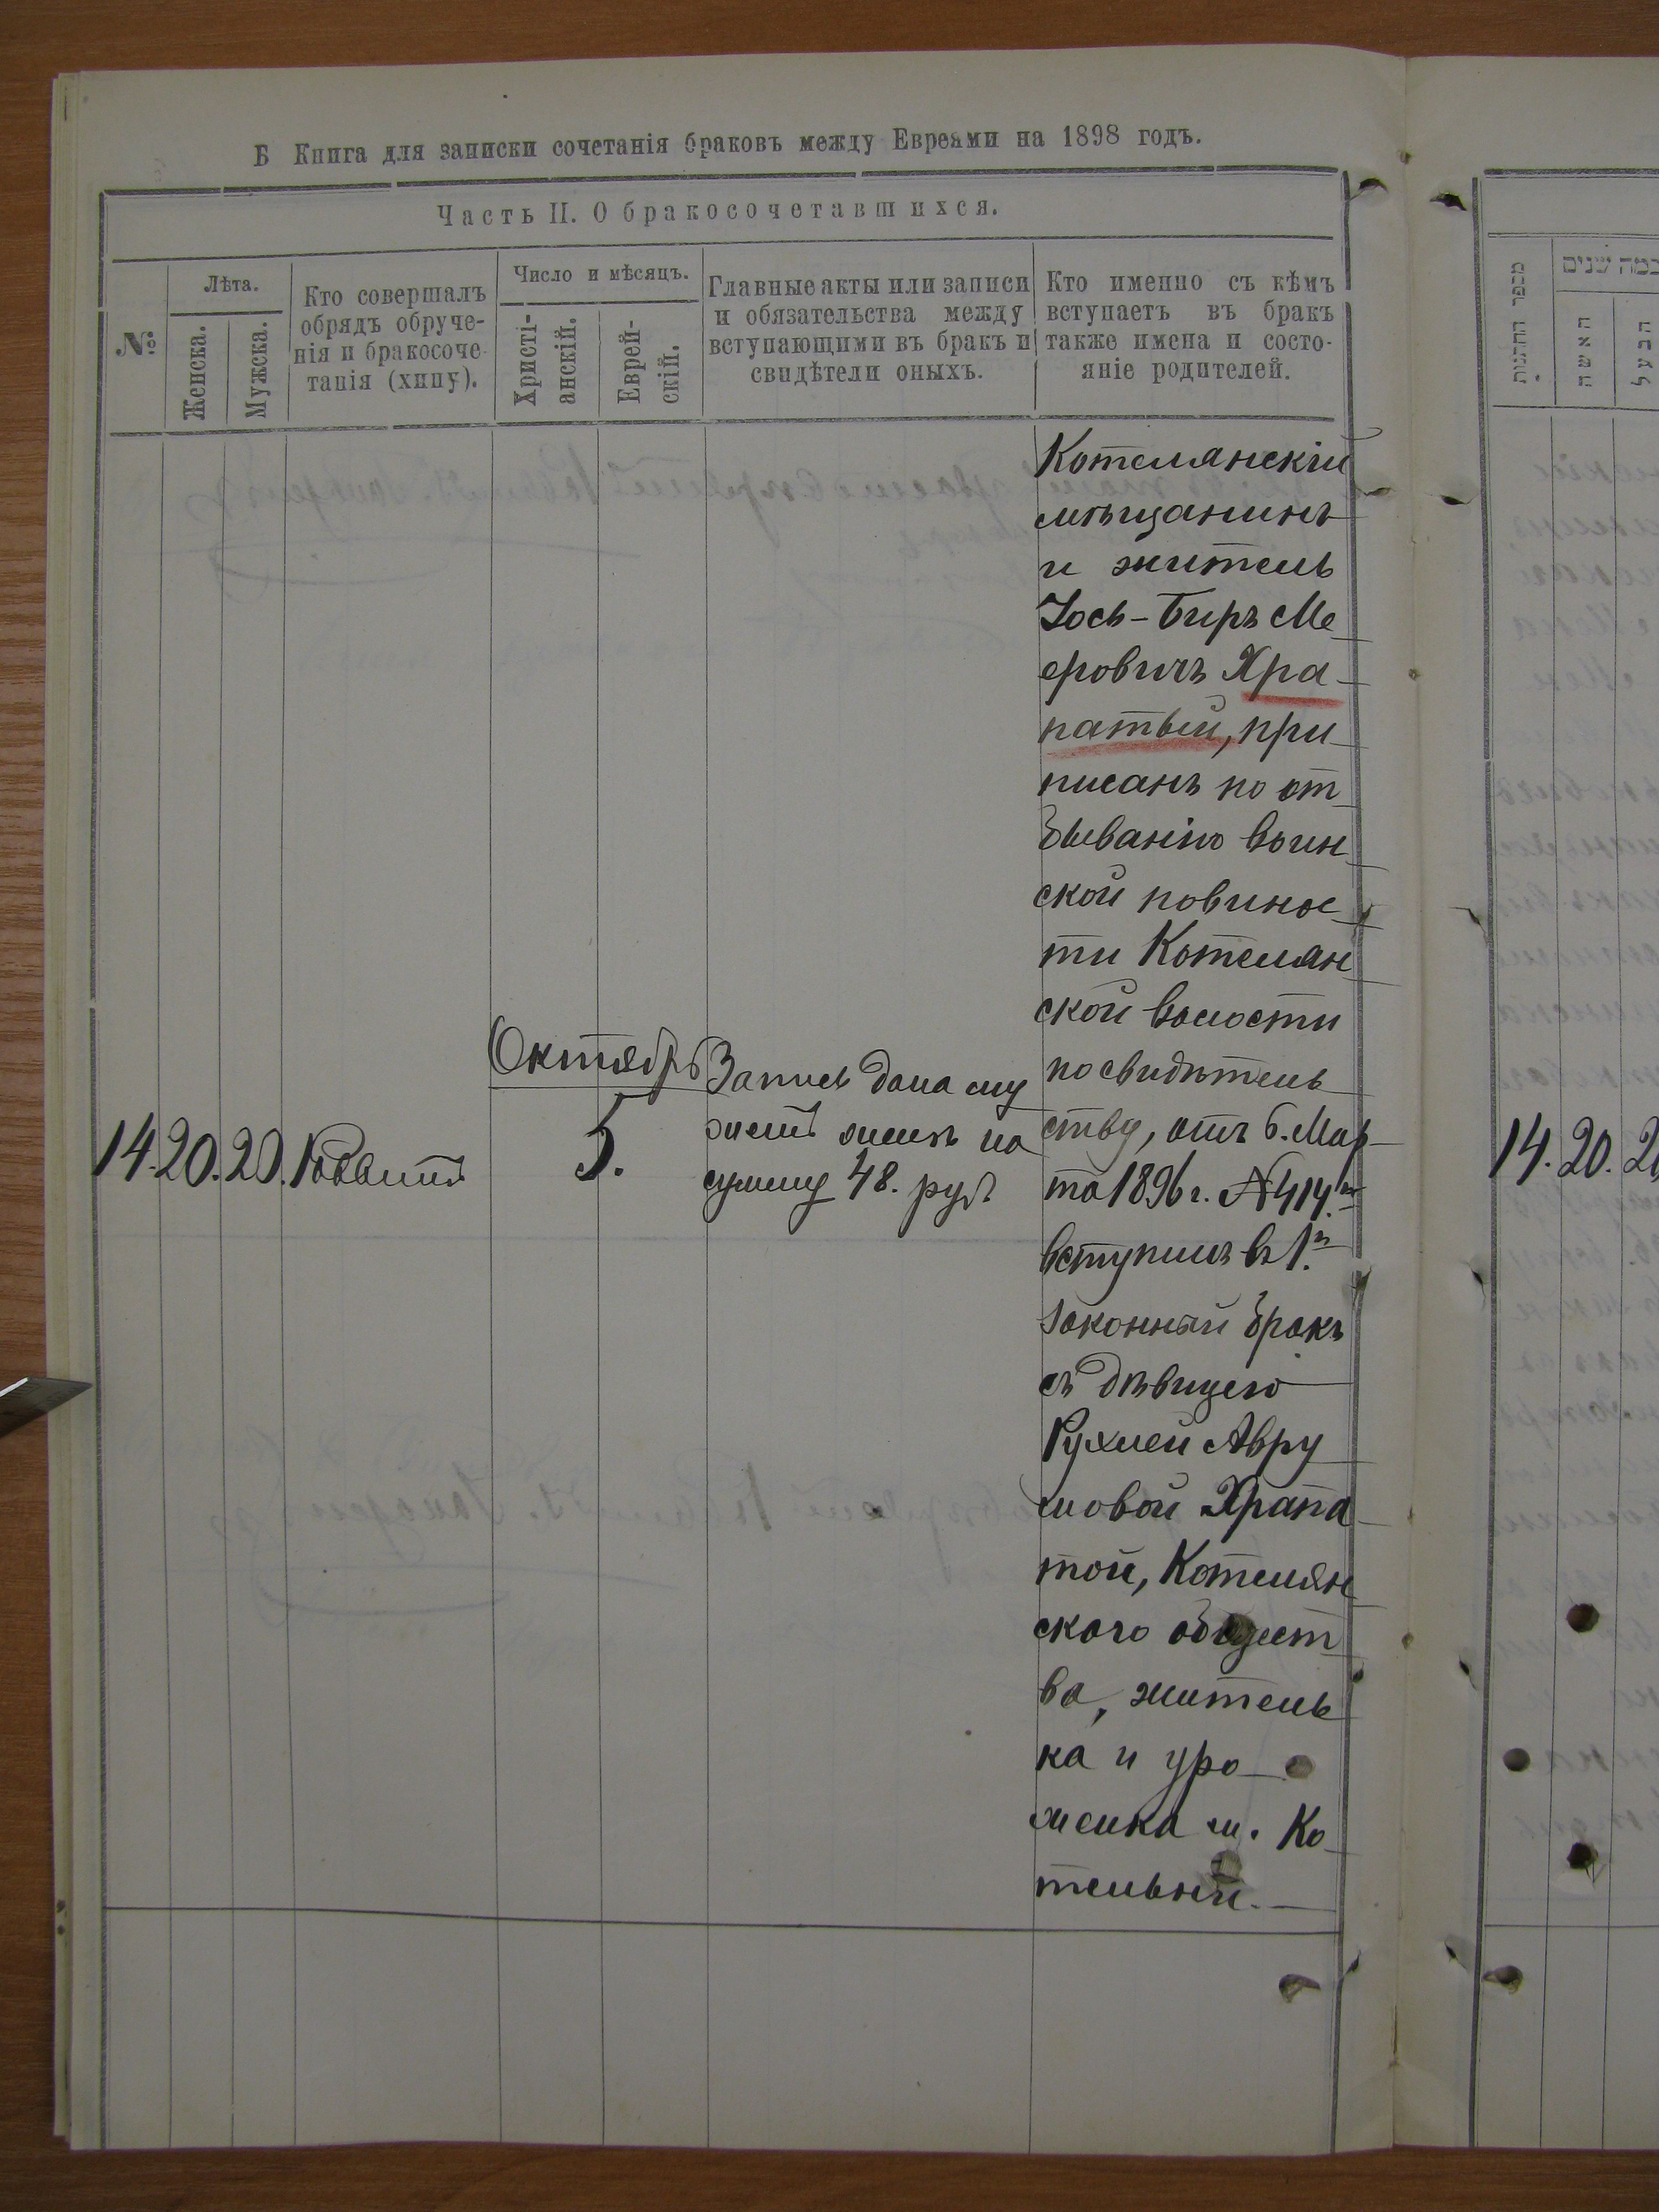 Б Книга для записки сочетанія браковъ между Евреями на 1898 годъ.
Часть II. О бракосочетавшихся.
№
Лѣта.
Женска.
Мужска.
Кто совершалъ
обрядъ обруче-
нія и бракосоче-
танія (хипу).
Число и мѣсяцъ.
Христі-
анскій.
Еврей-
скій.
Главные акты или записи
и обязательства между
вступающими въ бракъ и
свидѣтели оныхъ.
Кто именно съ кѣмъ
вступаетъ въ бракъ
также имена и состо-
яніе родителей.
14. 20. 20. Раввинъ
Октябрь
5.
Запись дана му
жемъ женѣ на
сумму 48. руб
Котелянскій
мѣщанинъ
и житель
Іось-Беръ Ме
еровичъ Хра-
патый, при
писанъ по от
быванію воин
ской повинос
ти Котелян
ской волости
по свидѣтель
ству, отъ 6. Мар
та 1896 г. № 414.
вступилъ въ 1.й
законный бракъ
съ дѣвицею
Рухлей Авру
мовой Храпа
той, Котелян
скаго общест
ва, житель
ка и уро
женка м. Ко
тельни.
מספר החתונות
כמה שנים
האשה
הבעל
14. 20. 2